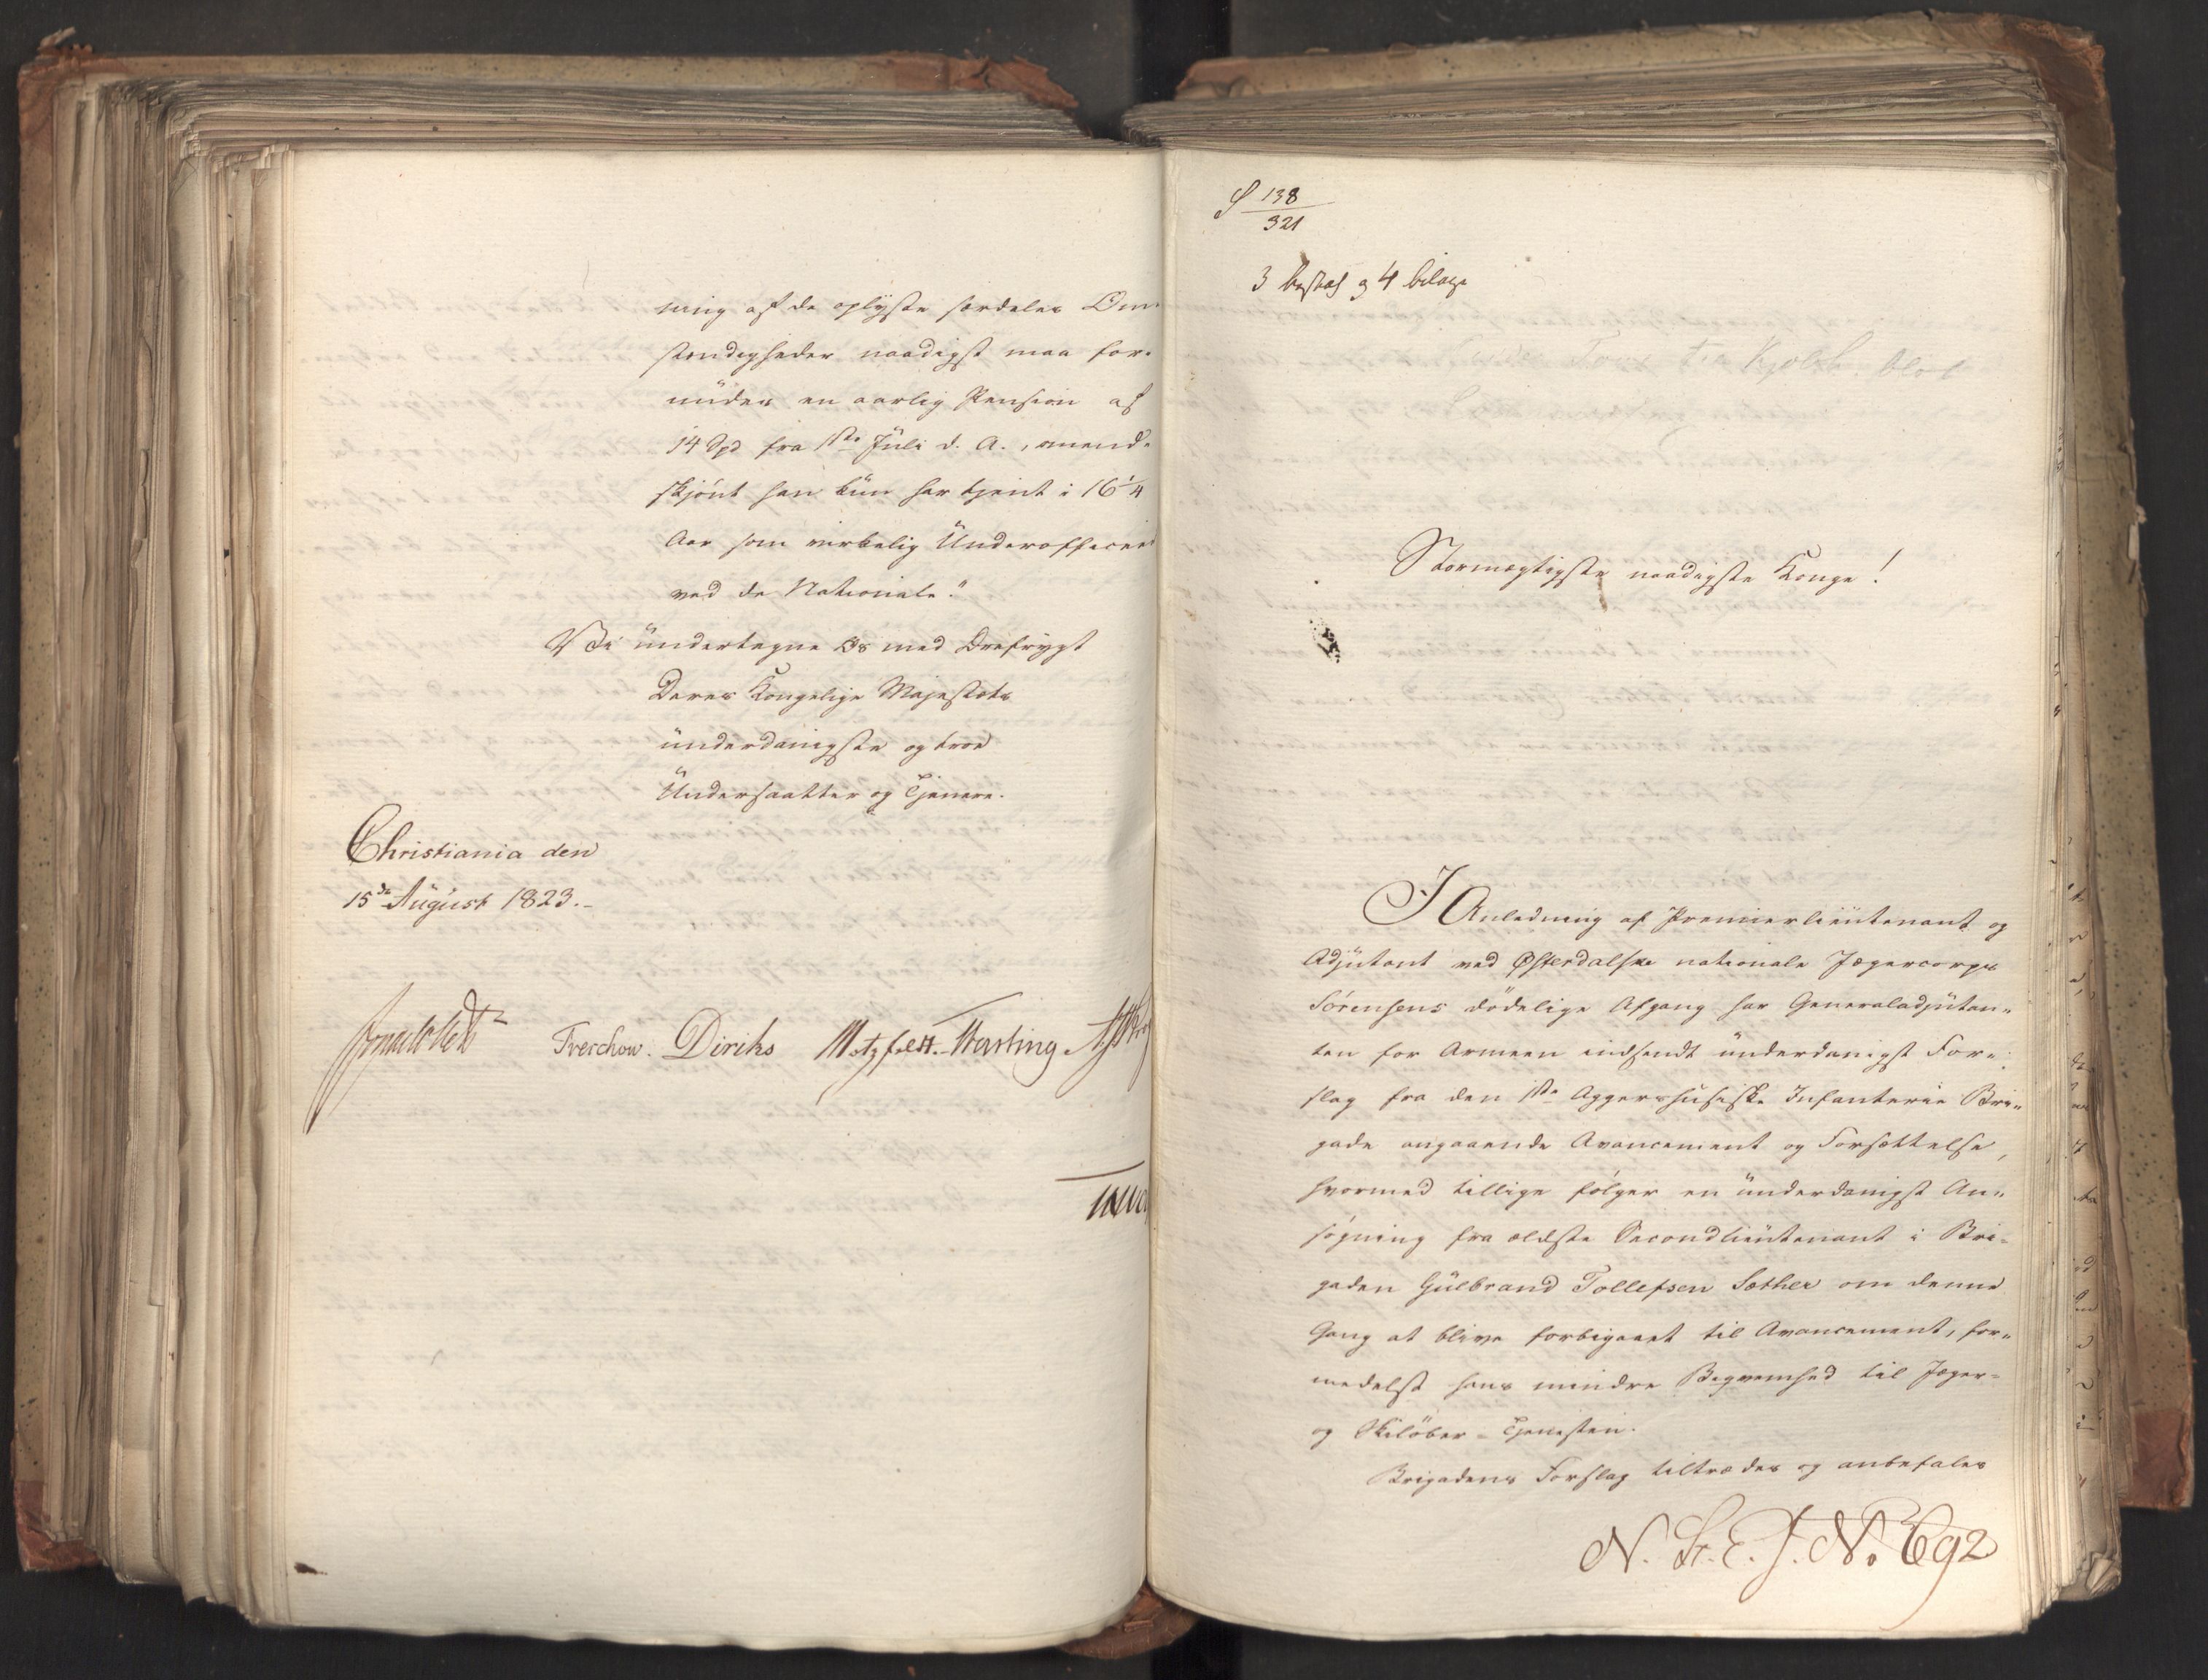 ning af de oplyste særdeles Om-
stændigheder naadigst maa for-
ünder en aarlig Pension af
14 Spd fra 1ste Jüli d. A., uend-
skjönt han kün har tjent i 16 1/4
Aar som virkelig Ünderofficeer
ved de Nationale."
Vi ündertegne Os med Ærefrygt
Deres Kongelige Majestæts
ünderdanigste og troe
Ündersaatter og Tjenere.
Christiania den
15de Aügüst 1823.-
Treschow. Diriks Motzfeldt.
S 138
321
3 4 bilage
Stormægtigste naadigste Konge!
I Anledning af Premierlieütenant og
Adjütant ved Østerdalske nationale Jægercorps
Sörensens dödelige Afgang har Generaladjütan-
ten for Armeen indsendt ünderdanigst For-
slag fra den 1ste Aggershüsiske Infanterie Bri-
gade angaaende Avancement og Forsættelse,
hvormed tillige fölger en ünderdanigst An-
sögning fra ældste Secondlieütenant i Bri-
gaden Gülbrand Tollefsen Sæther om denne
Gang at blive forbigaaet til Avancement, for-
medelst hans mindre Beqvemhed til Jæger-
og Skilöber-Tjenesten.
Brigadens Forslag tiltrædes og anbefales
N. St. E. J. No. 692